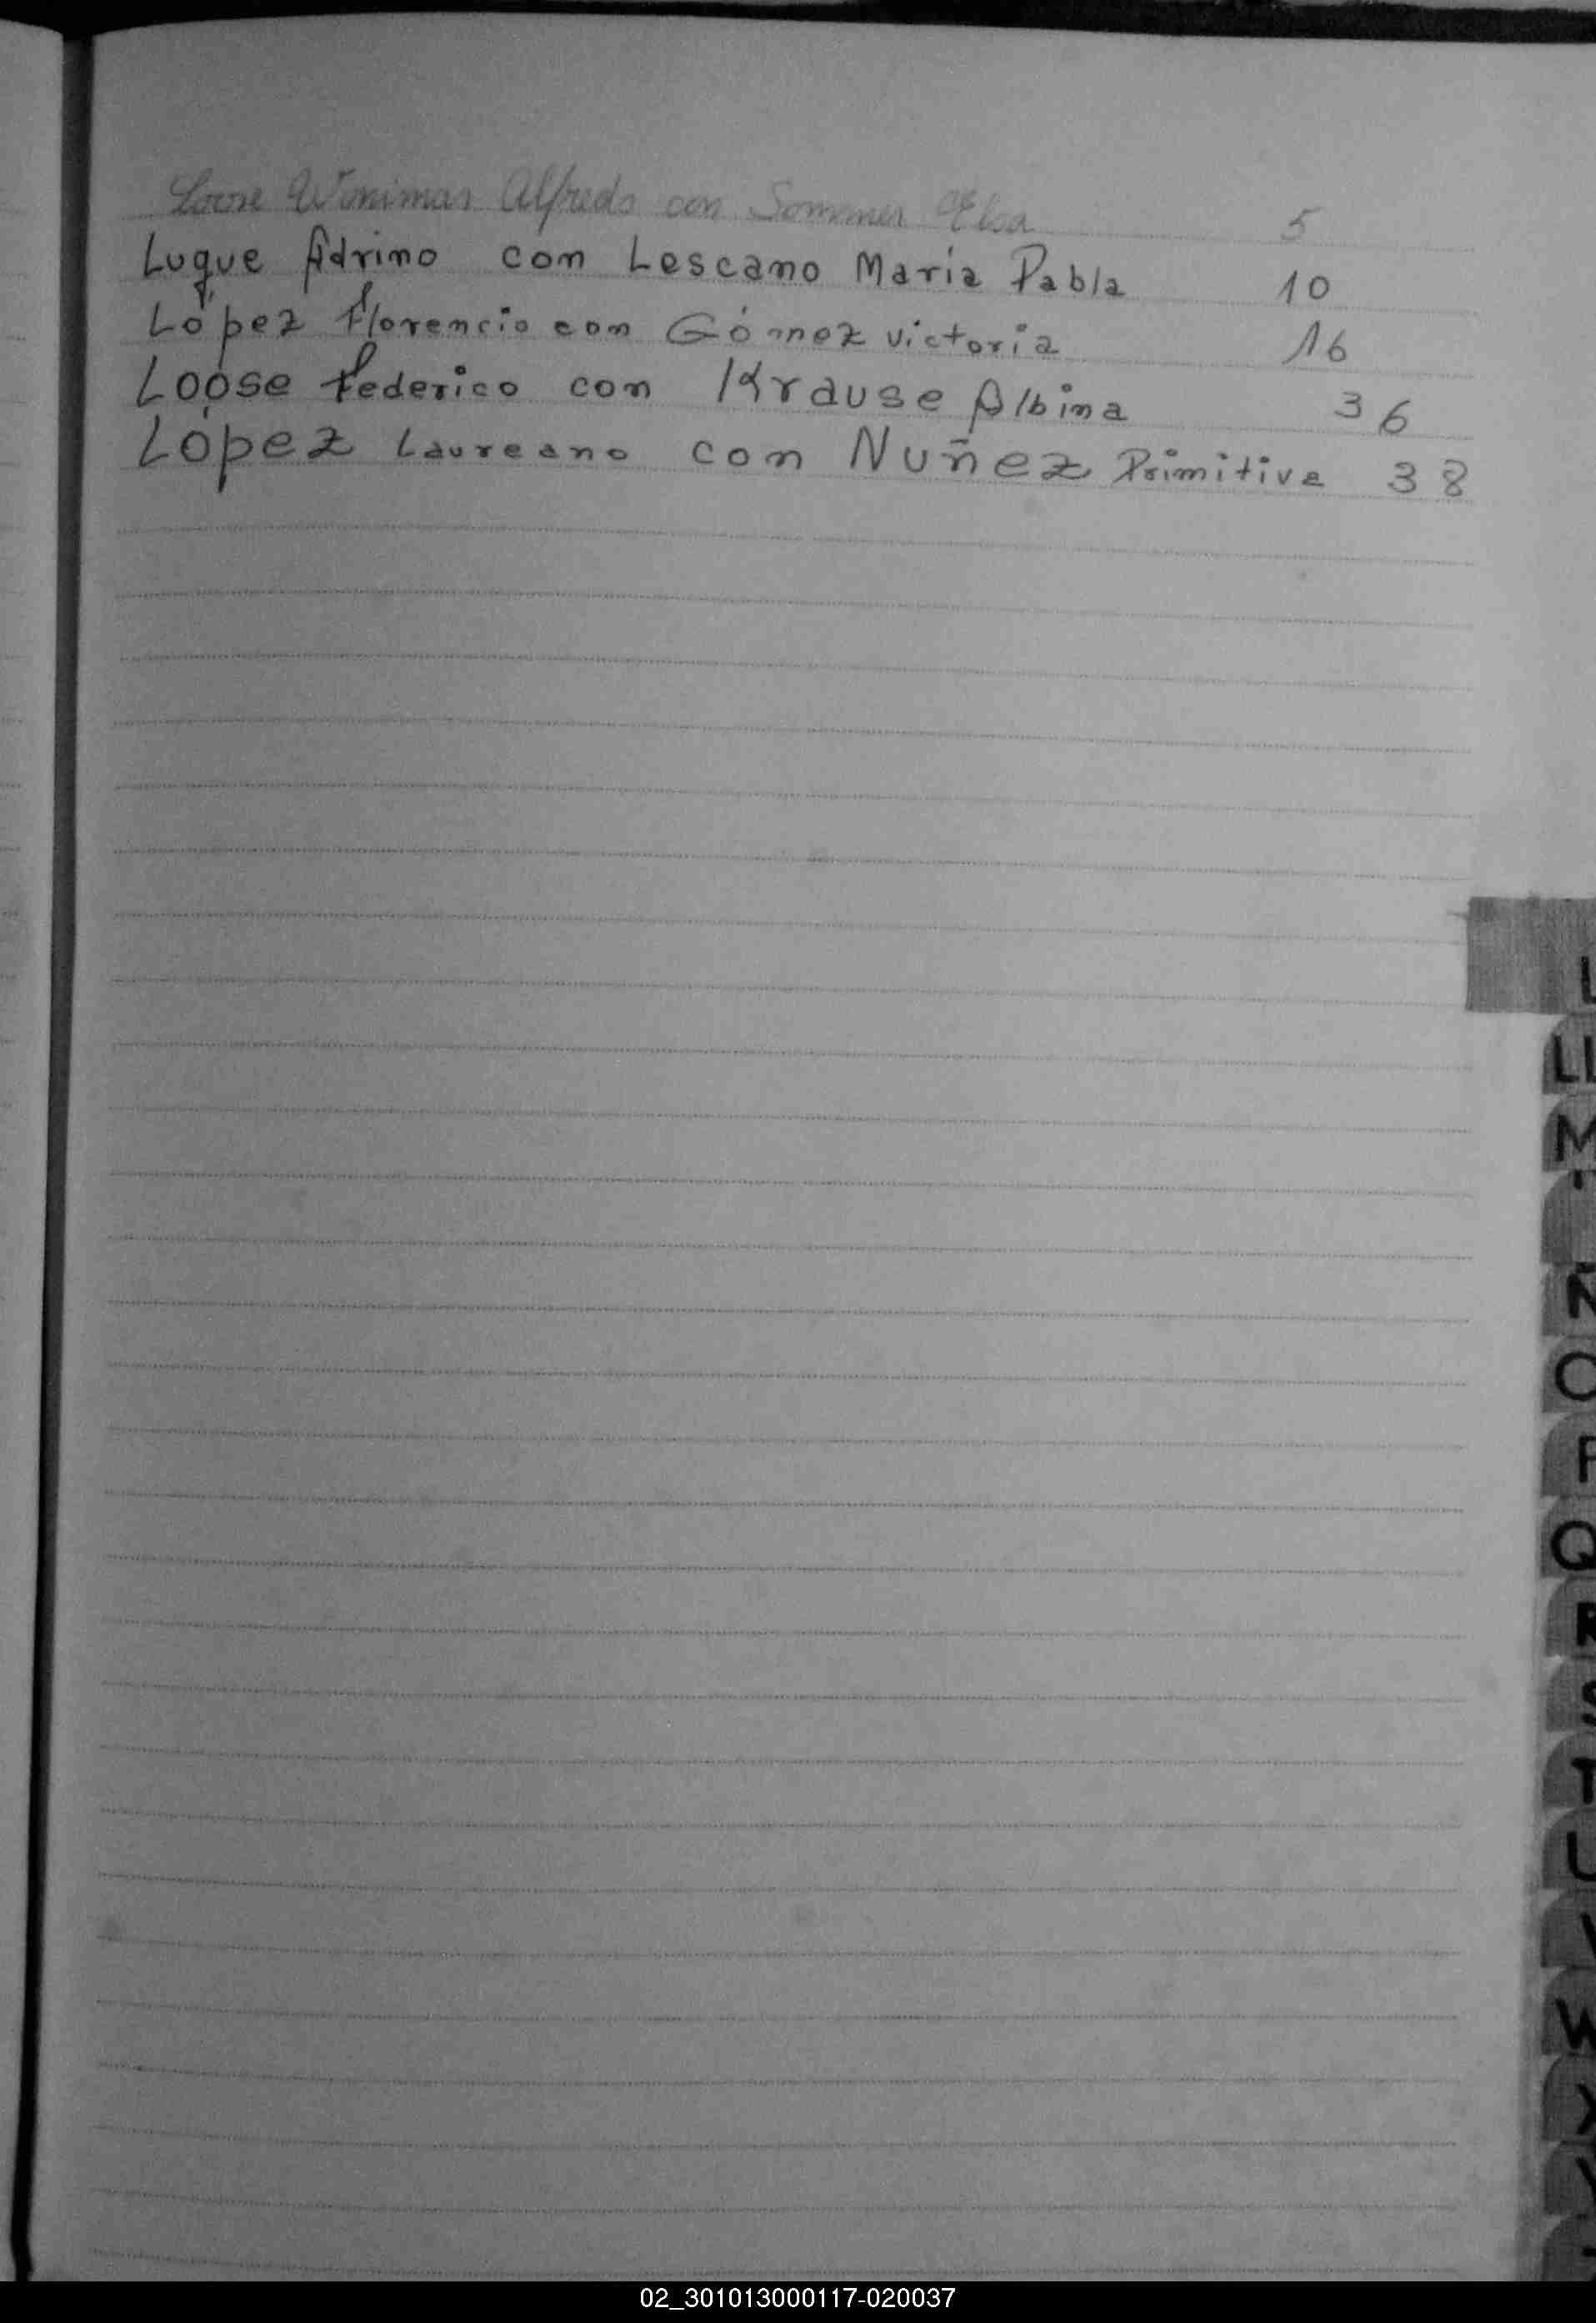 Loose Alfredo con Sommer Elsa 5
Luque Adrino con Lescano María Pabla 10
López Florencio con Gómez Victoria 16
Loose Federico con Krause Albina 36
López Laureano con Nuñez Primitiva 38
L
LL
M
Ñ
O
P
Q
R
S
T
U
V
W
X
Y
02_301013000117-020037